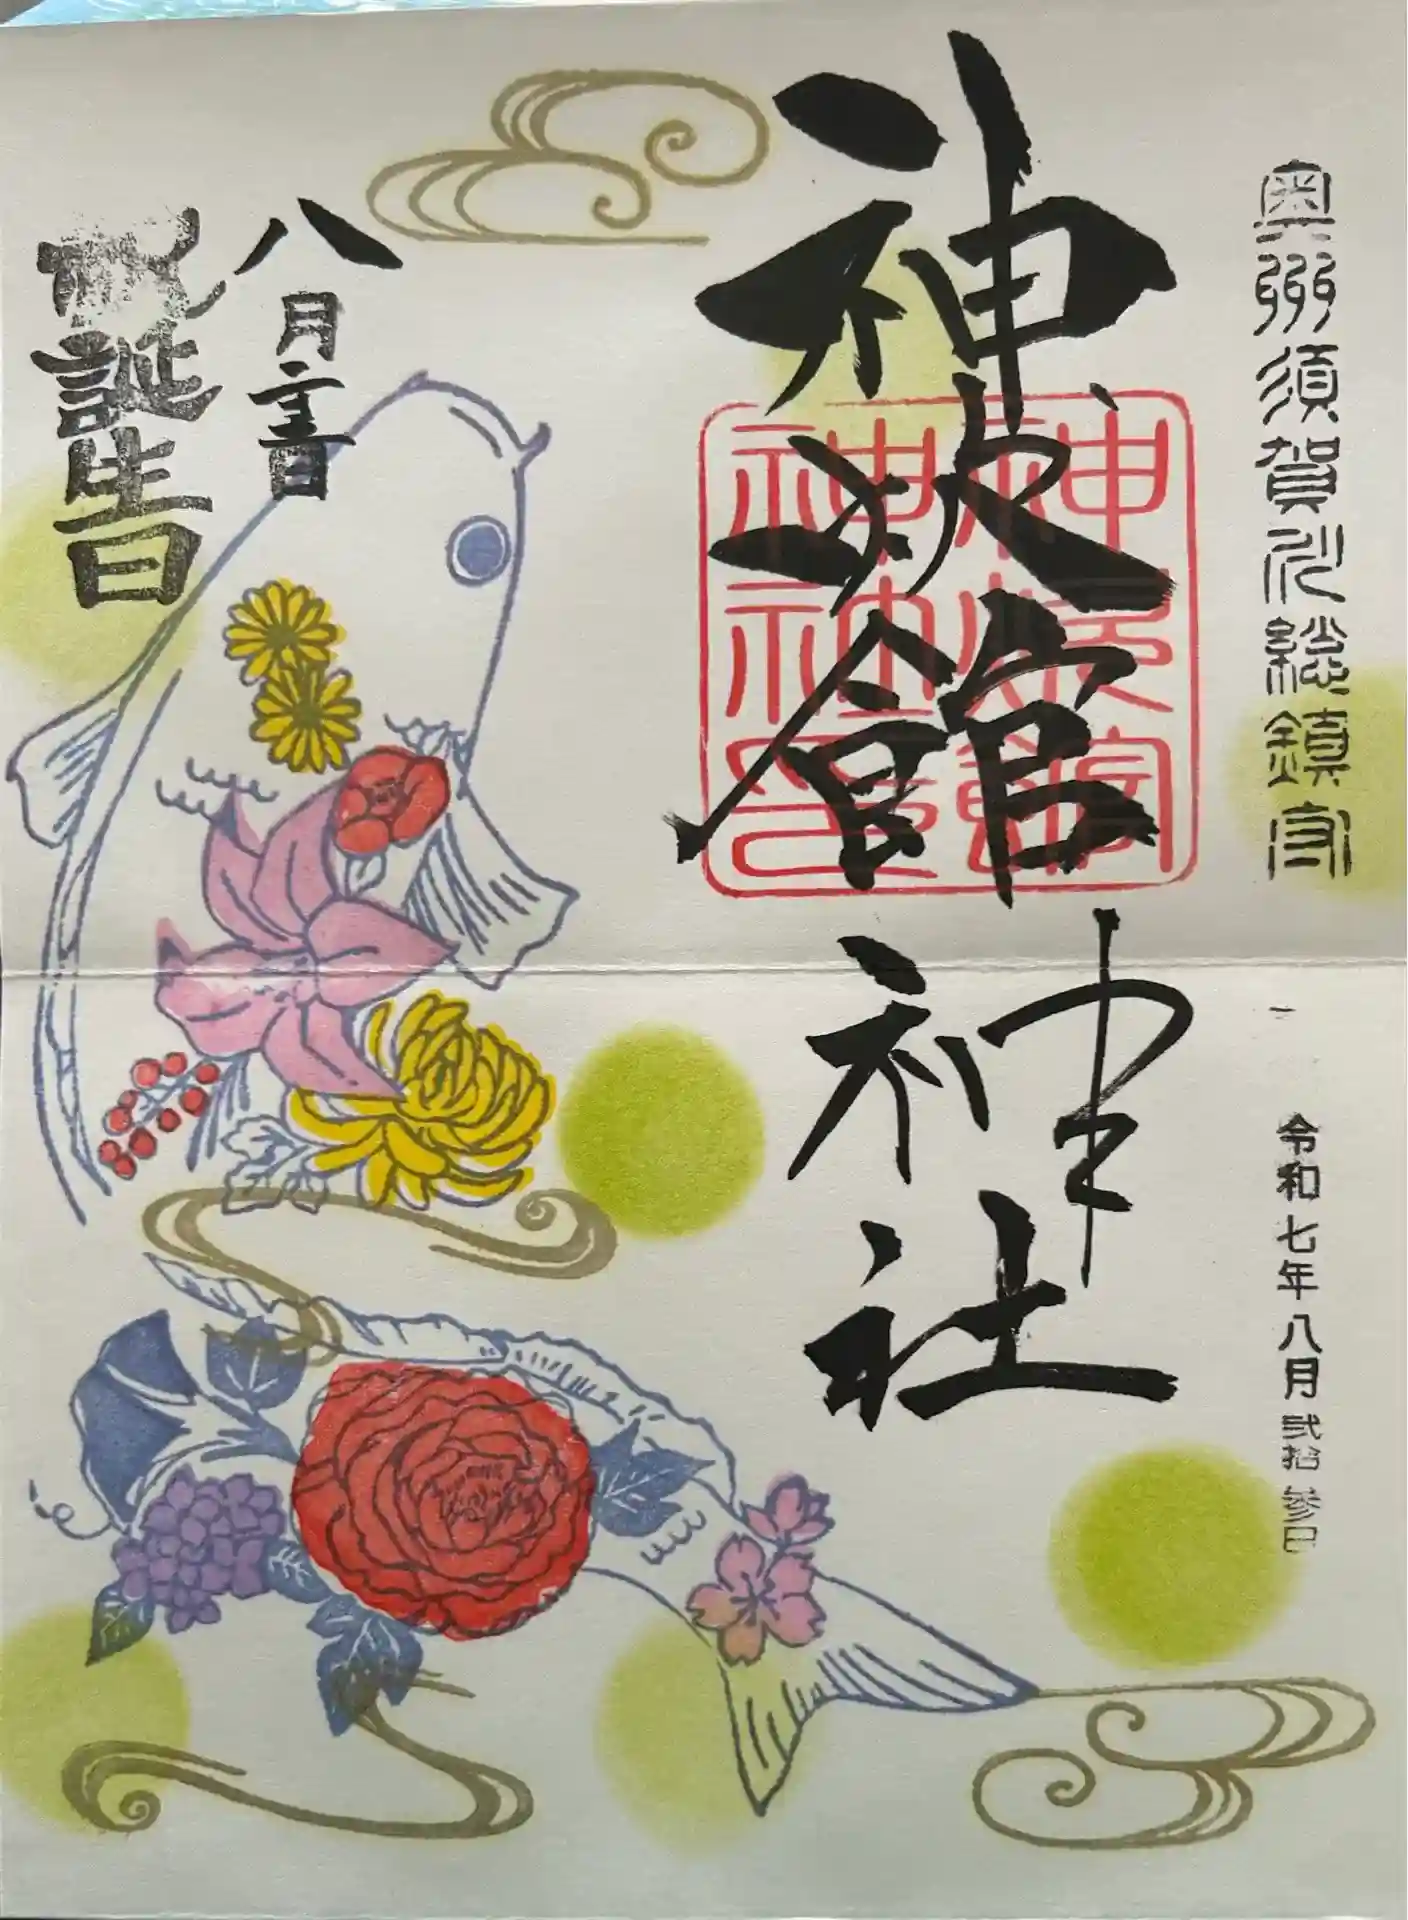 奥州須賀川総鎮守
神炊館
神社
令和七年八月弐拾参日
八月吉日
祝誕生日